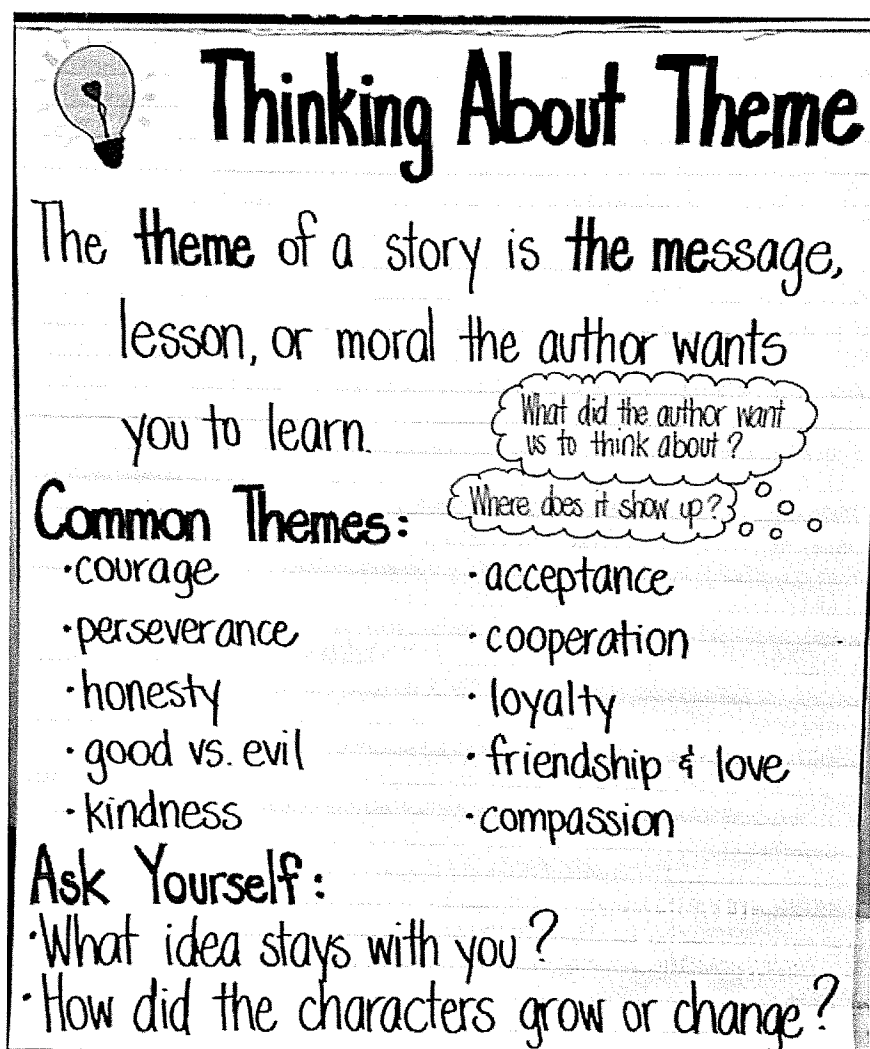 Thinking About Theme
The theme of a story is the message,
lesson, or moral the author wants
you to learn.
What did the author want
us to think about?
Where does it show up?
Common Themes:
·courage
·perseverance
·honesty
·good vs. evil
·kindness
·acceptance
·cooperation
·loyalty
·friendship & love
·compassion
Ask Yourself:
·What idea stays with you?
·How did the characters grow or change?